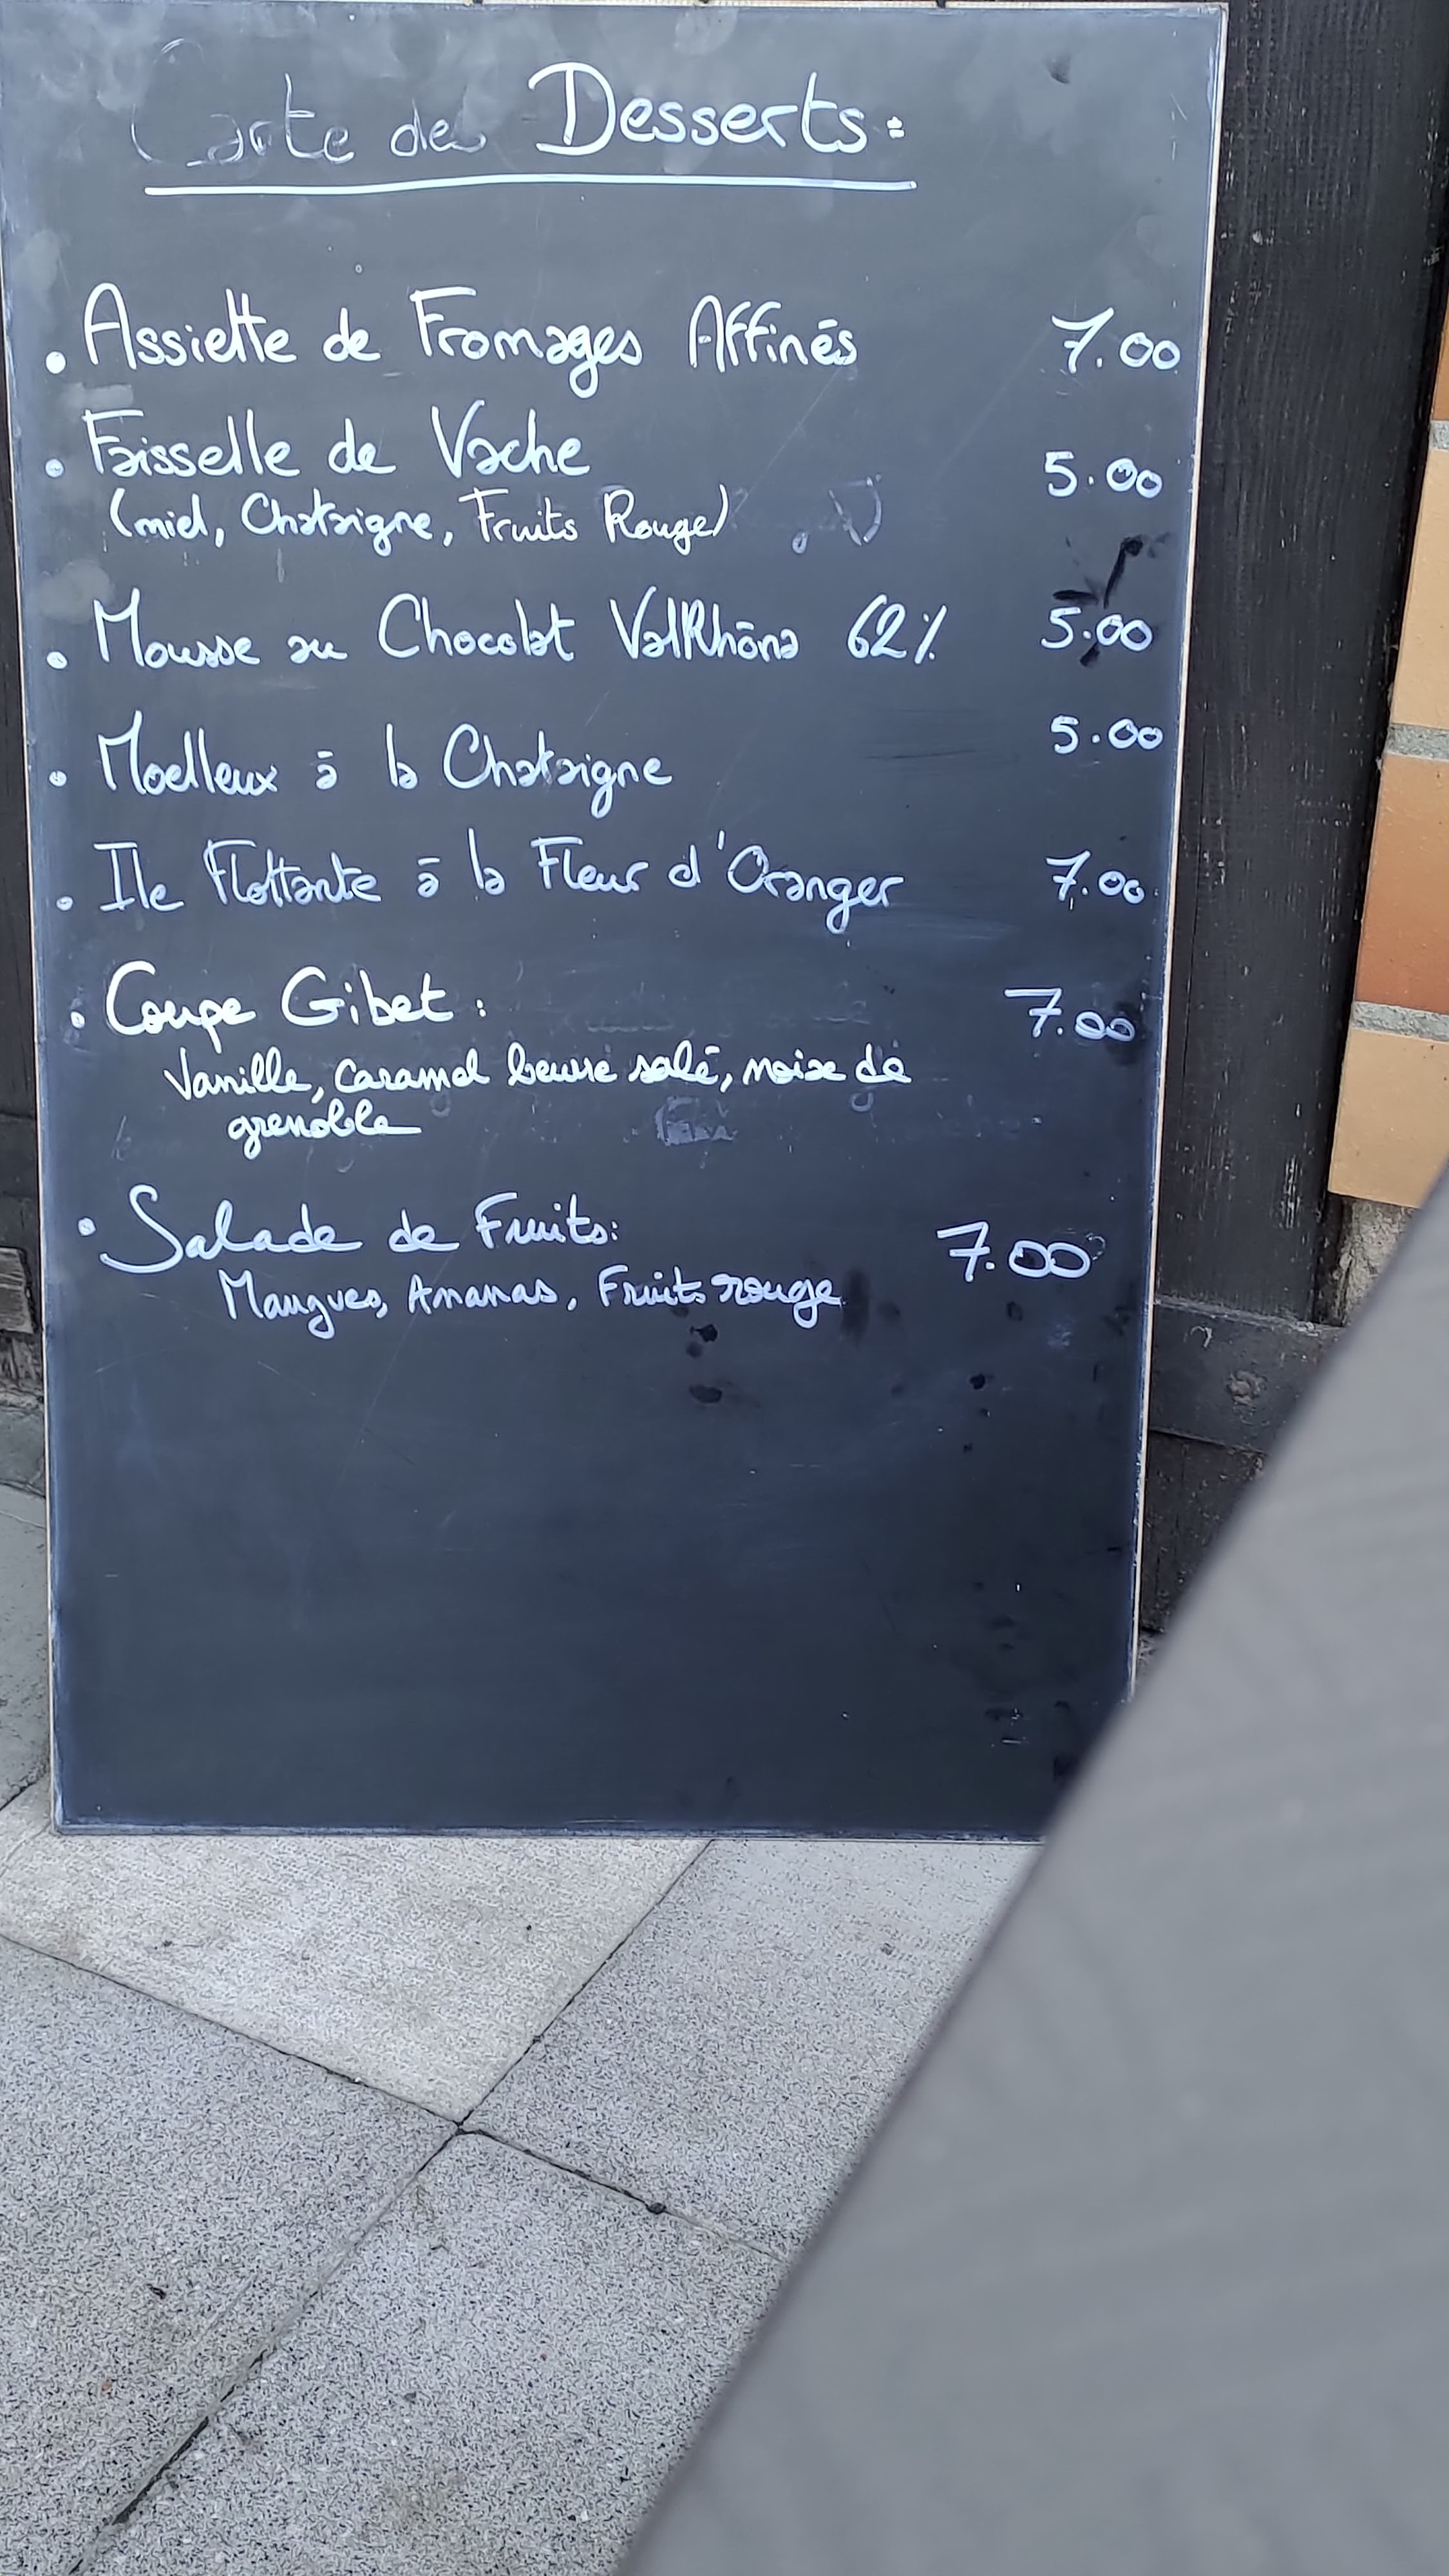 Carte des Desserts:
. Assiette de Fromages Affinés 7.00
. Faisselle de Vache 5.00
(miel, Chataigne, Fruits Rouge)
. Mousse au Chocolat ValRhôna 62% 5.00
. Moelleux à la Chataigne 5.00
. Ile Flottante à la Fleur d'Oranger 7.00
. Coupe Gibet : 7.00
Vanille, caramel beurre salé, noix de
grenoble
. Salade de Fruits: 7.00
Mangues, Ananas, Fruits rouge